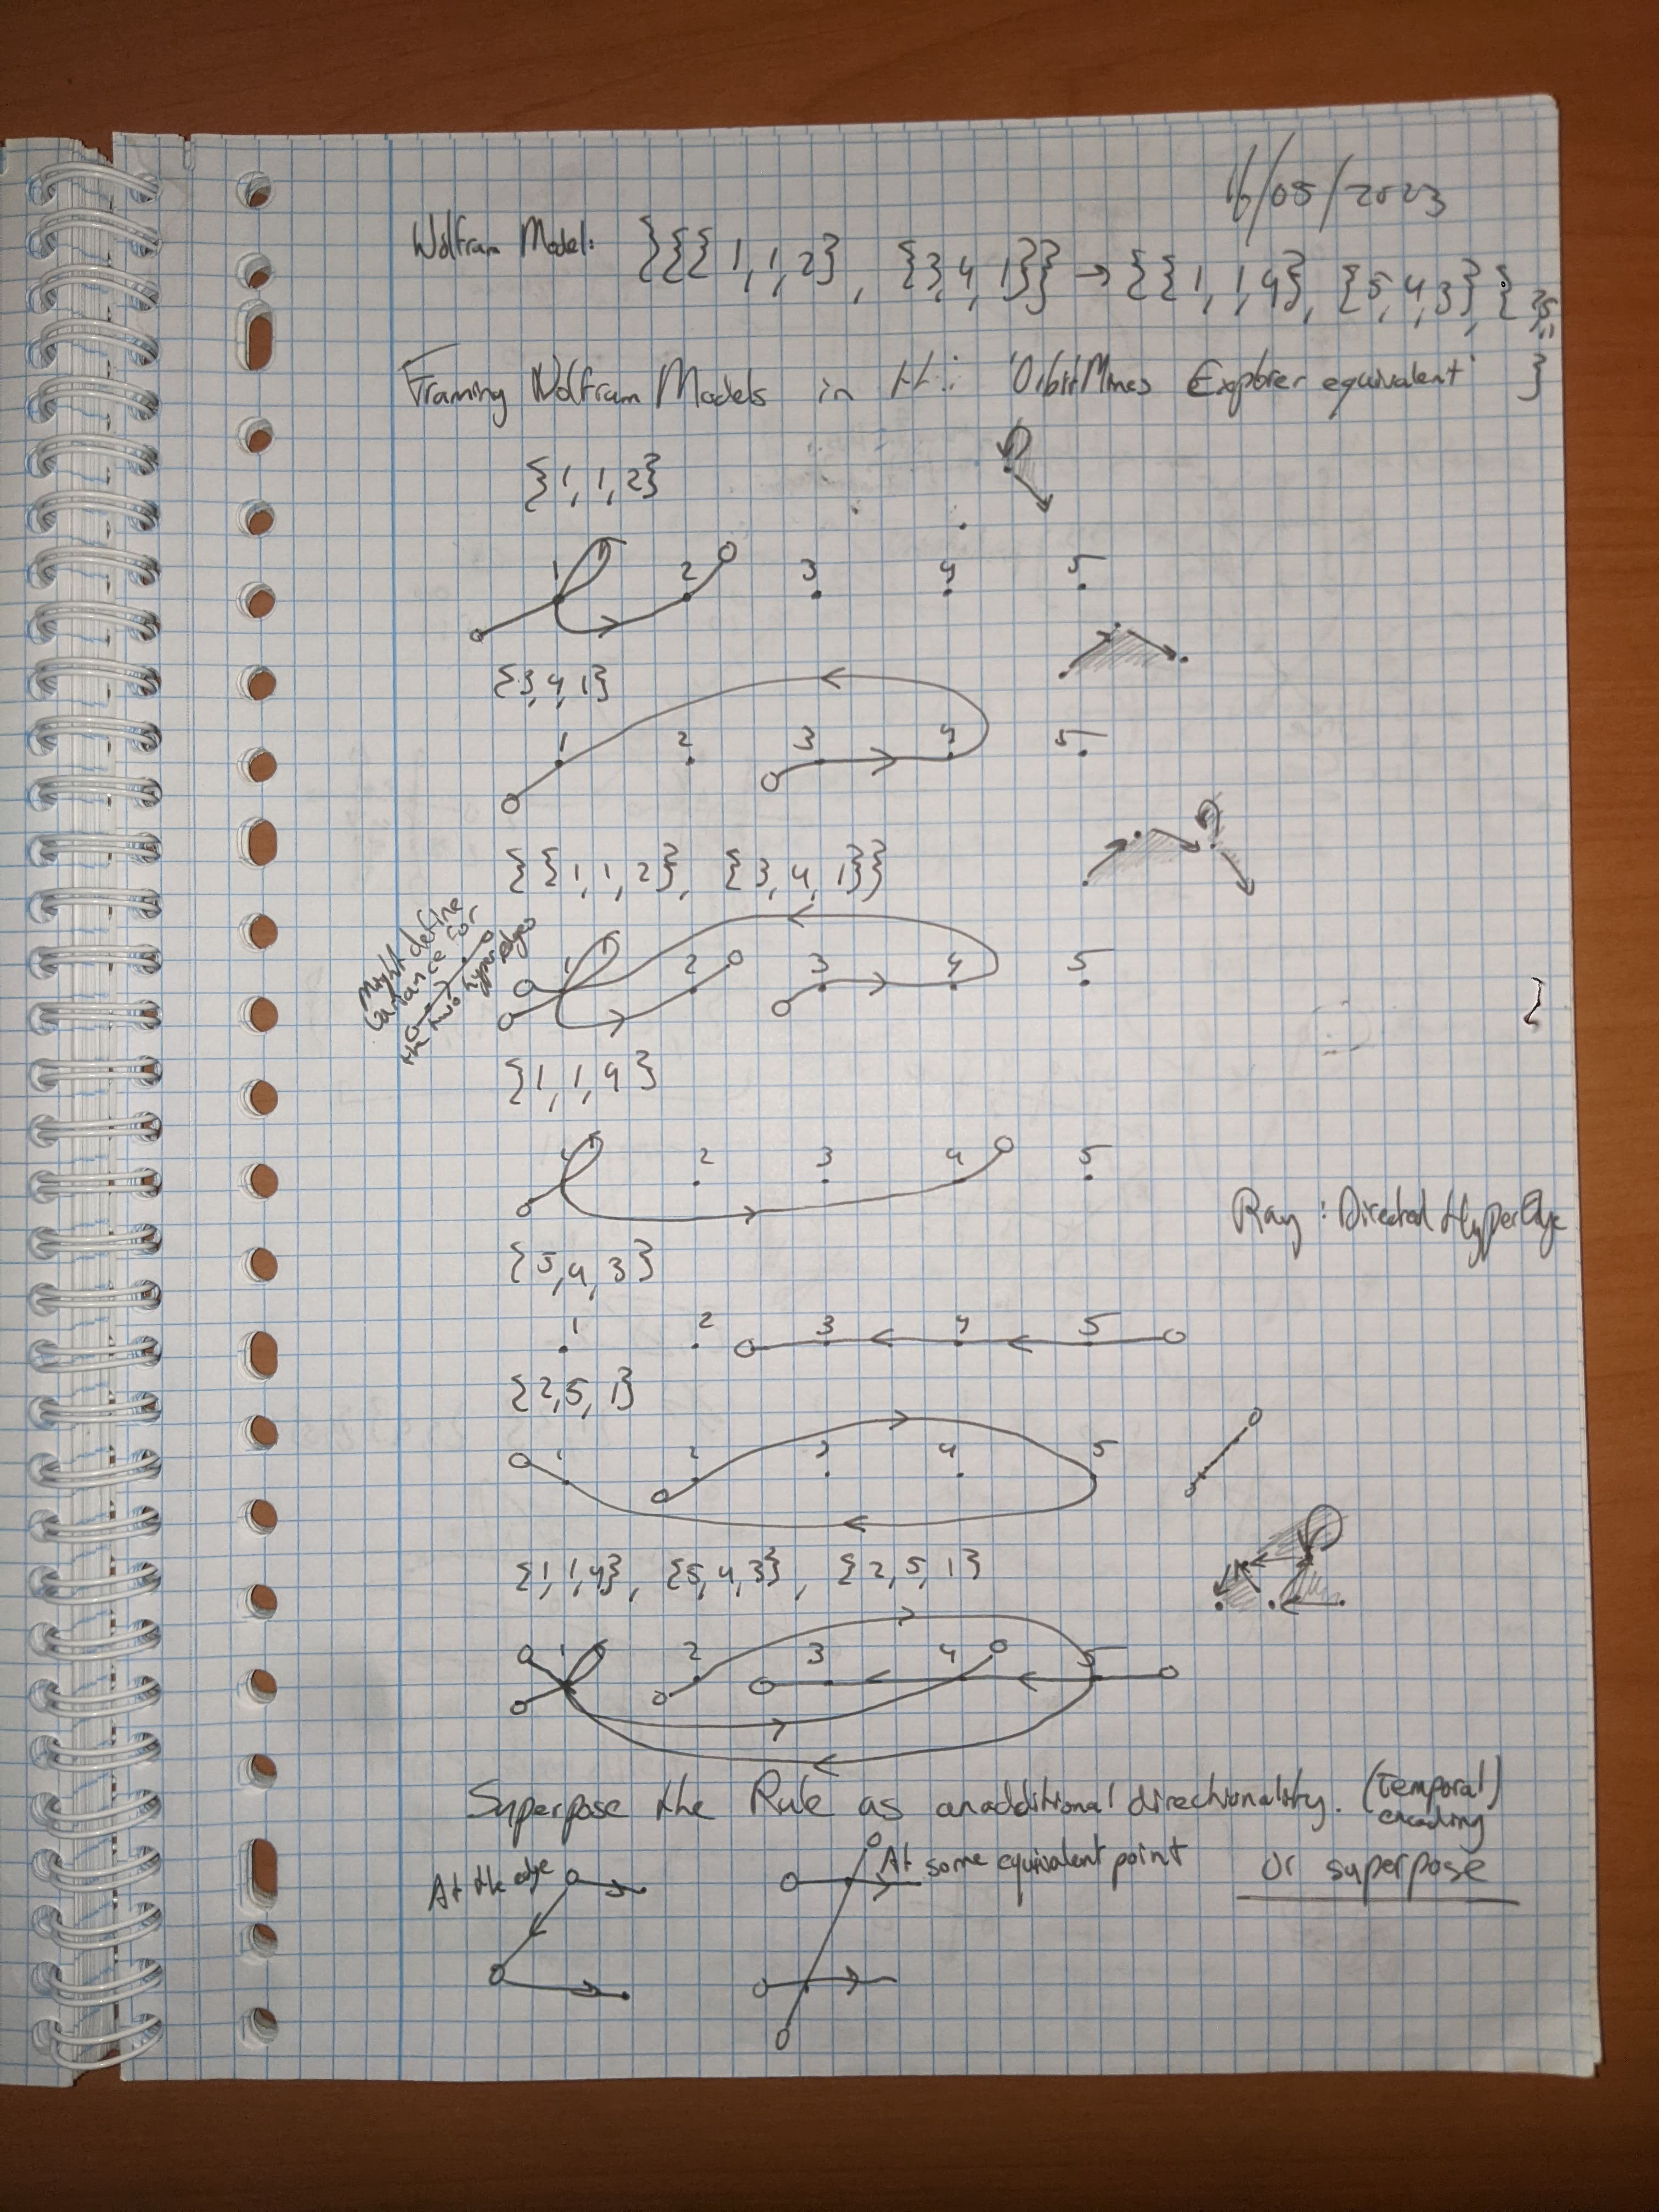 16/05/2023
Wolfram Model: {{{1,1,2}, {3,4,1}} → {{1,1,4}, {5,4,3}, {2,5,1}
Framing Wolfram Models in it: 'OrbitMines Explorer equivalent' }
{1,1,2}
1 2 3 4 5
{3,4,1}
1 2 3 4 5
{{1,1,2}, {3,4,1}}
Might define
variance for
the two hyperedges
1 2 3 4 5
{1,1,4}
1 2 3 4 5
Ray: Directed HyperEdge
{5,4,3}
1 2 3 4 5
{2,5,1}
1 2 3 4 5
{1,1,4}, {5,4,3}, {2,5,1}
1 2 3 4 5
Superpose the Rule as an additional directionality. (temporal)
encoding
At the edge
At some equivalent point
or superpose